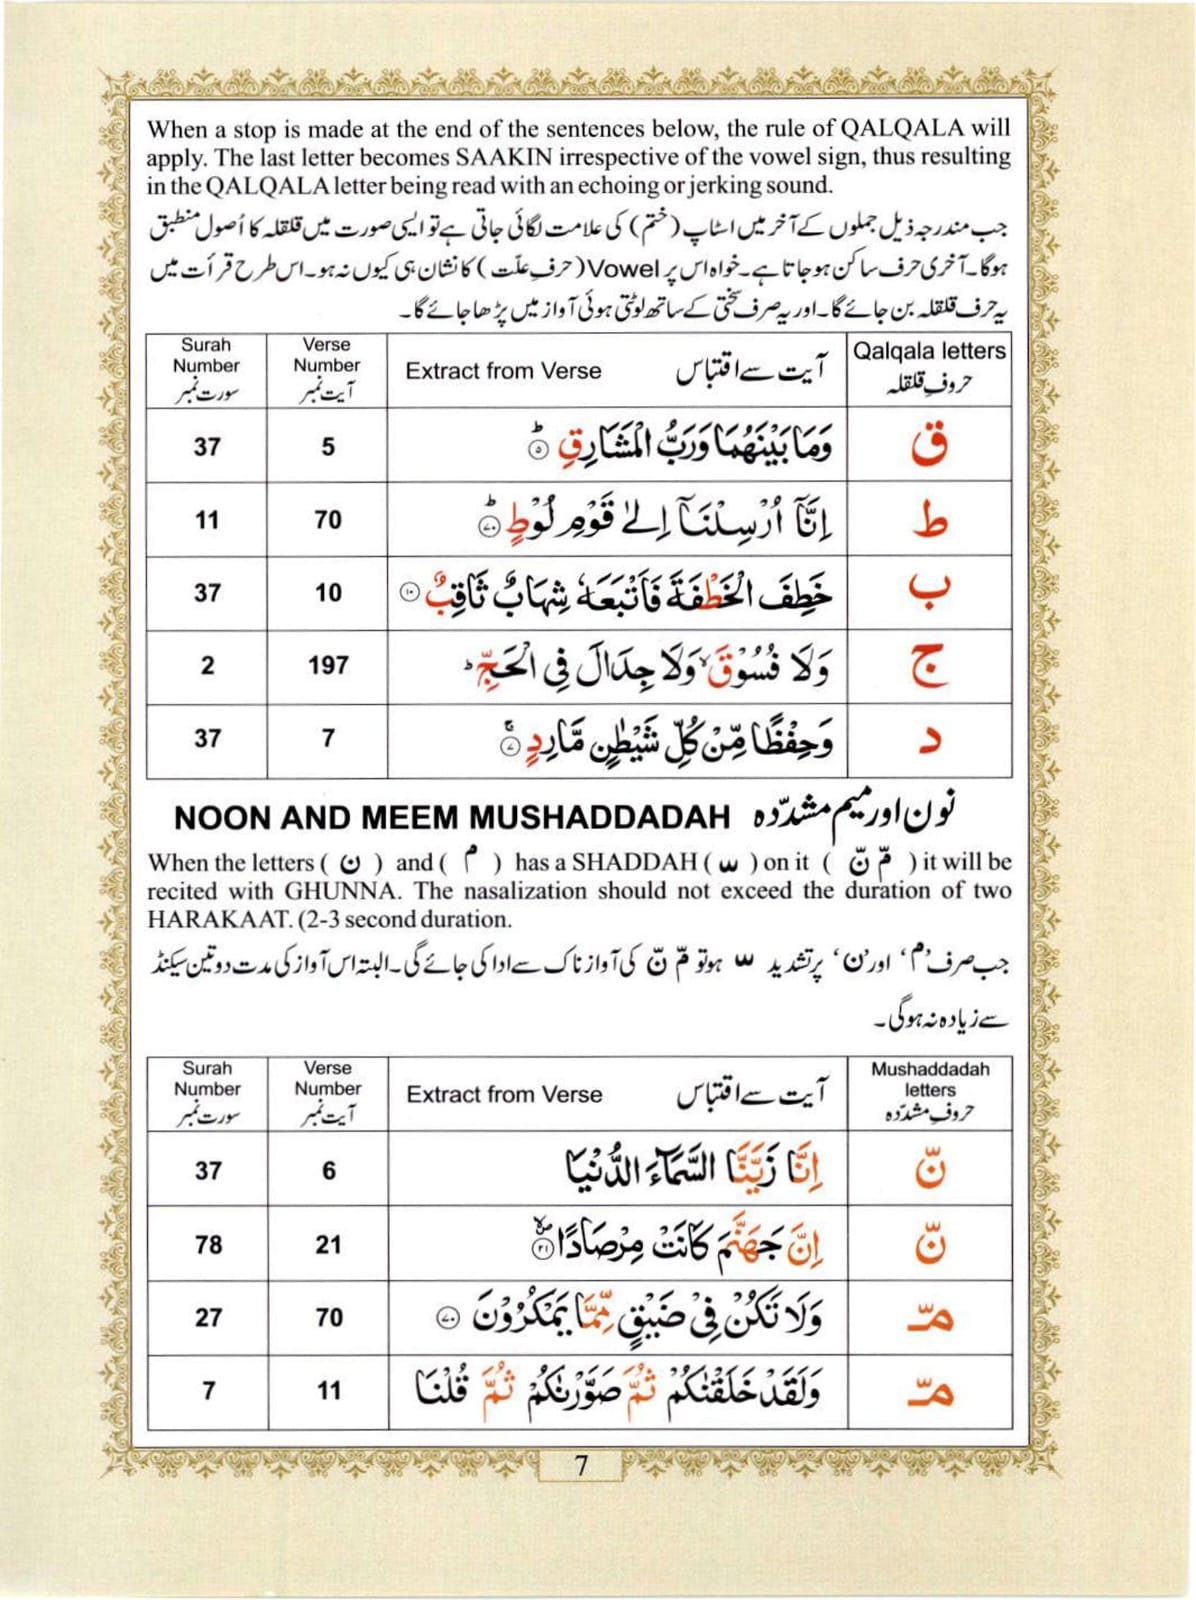 When a stop is made at the end of the sentences below, the rule of QALQALA will
apply. The last letter becomes SAAKIN irrespective of the vowel sign, thus resulting
in the QALQALA letter being read with an echoing or jerking sound.
جب مندرجہ ذیل جملوں کے آخر میں اسٹاپ (ختم) کی علامت لگائی جاتی ہے تو ایسی صورت میں قلقلہ کا اُصول منطبق
ہوگا۔ آخری حرف ساکن ہو جاتا ہے۔ خواہ اس پر Vowel (حرفِ علّت) کا نشان ہی کیوں نہ ہو۔ اس طرح قرأت میں
یہ حرف قلقلہ بن جائے گا۔ اور یہ صرف سختی کے ساتھ لوٹتی ہوئی آواز میں پڑھا جائے گا۔
Surah Number سورت نمبر | Verse Number آیت نمبر | Extract from Verse آیت سے اقتباس | Qalqala letters حروفِ قلقلہ
37 | 5 | وَمَا بَيْنَهُمَا وَرَبُّ الْمَشَارِقِ ۵ؕ | ق
11 | 70 | اِنَّآ اُرْسِلْنَآ اِلٰى قَوْمِ لُوْطٍ ۷۰ؕ | ط
37 | 10 | خَطِفَ الْخَطْفَةَ فَاَتْبَعَهٗ شِهَابٌ ثَاقِبٌ ۱۰ | ب
2 | 197 | وَلَا فُسُوْقَ ۙ وَلَا جِدَالَ فِى الْحَجِّ ؕ | ج
37 | 7 | وَحِفْظًا مِّنْ كُلِّ شَيْطٰنٍ مَّارِدٍ ۷ۚ | د
NOON AND MEEM MUSHADDADAH نون اور میم مشدّدہ
When the letters ( ن ) and ( م ) has a SHADDAH ( ّ ) on it ( مّ نّ ) it will be
recited with GHUNNA. The nasalization should not exceed the duration of two
HARAKAAT. (2-3 second duration.
جب صرف ’م‘ اور ’ن‘ پر تشدید ّ ہو تو مّ نّ کی آواز ناک سے ادا کی جائے گی۔ البتہ اس آواز کی مدت دو تین سیکنڈ
سے زیادہ نہ ہوگی۔
Surah Number سورت نمبر | Verse Number آیت نمبر | Extract from Verse آیت سے اقتباس | Mushaddadah letters حروفِ مشدّدہ
37 | 6 | اِنَّا زَيَّنَّا السَّمَآءَ الدُّنْيَا | نّ
78 | 21 | اِنَّ جَهَنَّمَ كَانَتْ مِرْصَادًا ۲۱ۙ | نّ
27 | 70 | وَلَا تَكُنْ فِىْ ضَيْقٍ مِّمَّا يَمْكُرُوْنَ ۷۰ | مّـ
7 | 11 | وَلَقَدْ خَلَقْنٰكُمْ ثُمَّ صَوَّرْنٰكُمْ ثُمَّ قُلْنَا | مّـ
7